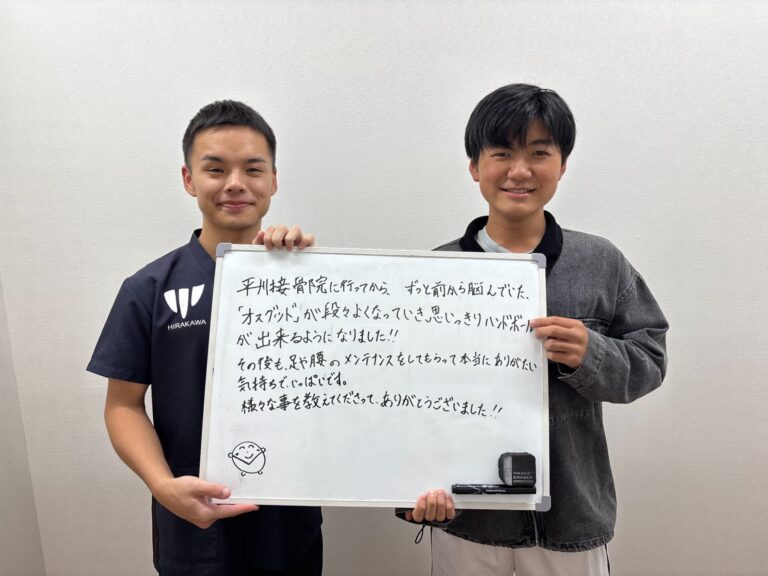 平川接骨院に行ってから、ずっと前から脳んでいた、
「オスグッド」が段々よくなっていき、思いっきりハンドボール
が出来るようになりました!!
その後も、足や腰のメンテナンスをしてもらって本当にありがたい
気持ちで、いっぱいです。
様々な事を教えてくださって、ありがとうございました!!
HIRAKAWA